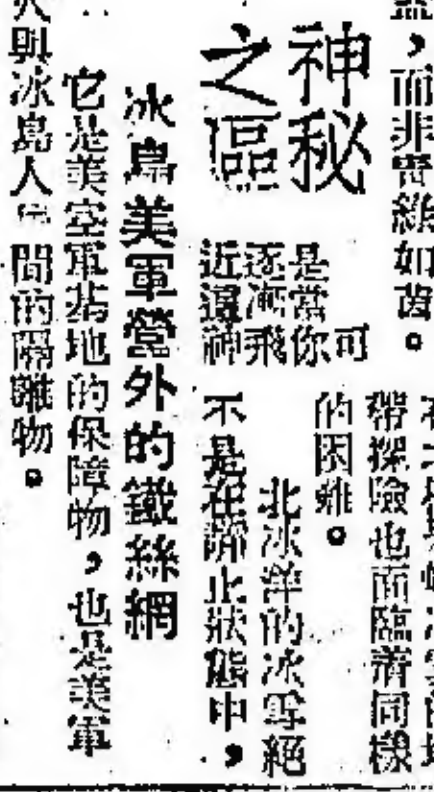 藍，而非青綠如茵。
神秘
之區
可
是當你
逐漸飛
近這神
帶探險也面臨著同樣
的困難。
北冰洋的冰雪絕
不是在靜止狀態中，
冰島美軍營外的鐵絲網
它是美空軍基地的保障物，也是美軍
人與冰島人民間的隔離物。